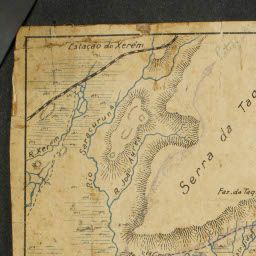 Estação de Xerém
R. Xerém
Rio Saracuruna
R. da
Serra da Taq
Faz. da Taq